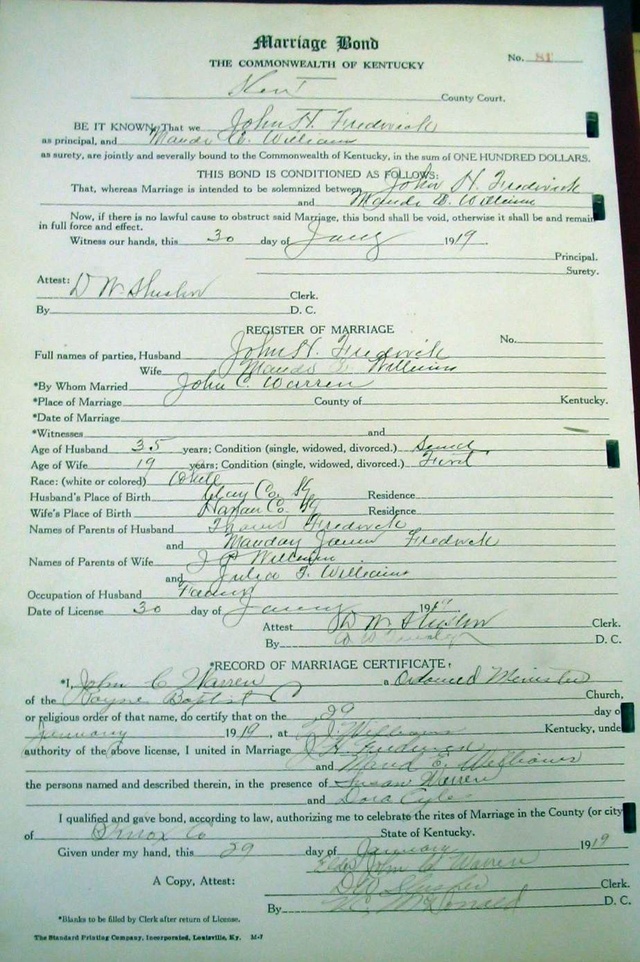 Marriage Bond
THE COMMONWEALTH OF KENTUCKY
No. 81
County Court.
BE IT KNOWN, That we John H. Frederick
as principal, and Maude E. Williams
as surety, are jointly and severally bound to the Commonwealth of Kentucky, in the sum of ONE HUNDRED DOLLARS.
THIS BOND IS CONDITIONED AS FOLLOWS:
That, whereas Marriage is intended to be solemnized between John H. Frederick
and Maude E. Williams
Now, if there is no lawful cause to obstruct said Marriage, this bond shall be void, otherwise it shall be and remain
in full force and effect.
Witness our hands, this 30 day of Jany 1919.
Principal.
Surety.
Attest: D W Clerk.
By D. C.
REGISTER OF MARRIAGE
No.
Full names of parties, Husband John H. Frederick
Wife Maude Williams
*By Whom Married John C. Warren
*Place of Marriage County of Kentucky.
*Date of Marriage
*Witnesses and
Age of Husband 35 years; Condition (single, widowed, divorced.)
Age of Wife 19 years; Condition (single, widowed, divorced.) First
Race: (white or colored) White
Husband's Place of Birth Clay Co. Ky Residence
Wife's Place of Birth Harlan Co. Ky Residence
Names of Parents of Husband Frederick
and Frederick
Names of Parents of Wife J P
and Julia F. Williams
Occupation of Husband
Date of License 30 day of Jany 1919
Attest D W Clerk.
By D. C.
*RECORD OF MARRIAGE CERTIFICATE.
*I, John C Warren a Ordained Minister
of the Baptist Church,
or religious order of that name, do certify that on the 29 day of
January 1919, at J Williams Kentucky, under
authority of the above license, I united in Marriage J H Frederick
and Maud E. Williams
the persons named and described therein, in the presence of Susan Warren
and Dora
I qualified and gave bond, according to law, authorizing me to celebrate the rites of Marriage in the County (or city)
of Knox Co State of Kentucky.
Given under my hand, this 29 day of January 1919
John C Warren
A Copy, Attest: D W Clerk.
By McDonald D. C.
*Blanks to be filled by Clerk after return of License.
The Standard Printing Company, Incorporated, Louisville, Ky. M-7